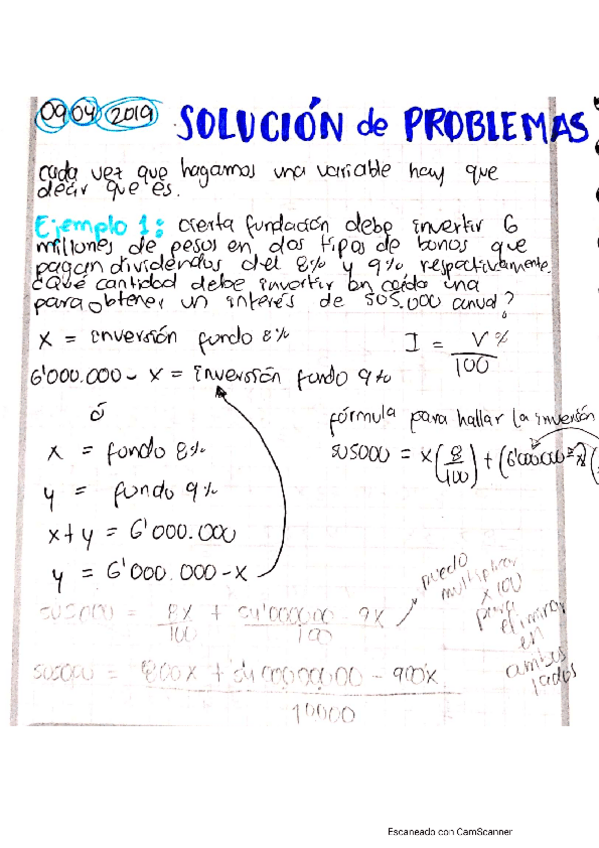 09 04 2019 SOLUCIÓN de PROBLEMAS
cada vez que hagamos una variable hay que
decir que es.
Ejemplo 1: cierta fundación debe invertir 6
millones de pesos en dos tipos de bonos que
pagan dividendos del 8% y 9% respectivamente.
¿Qué cantidad debe invertir en cada una
para obtener un interés de 505.000 anual?
x = inversión fondo 8%
I = V% / 100
6'000.000 - x = inversión fondo 9%
ó
fórmula para hallar la inversión
x = fondo 8%
505000 = x(8/100) + (6'000000 - x)(
y = fondo 9%
x + y = 6'000.000
y = 6'000.000 - x
puedo
multiplicar
x 100
para
eliminar
en
ambos
lados
505000 = 8x/100 + 54'000000 - 9x/100
505000 = 800x + 5400000000 - 900x / 10000
Escaneado con CamScanner